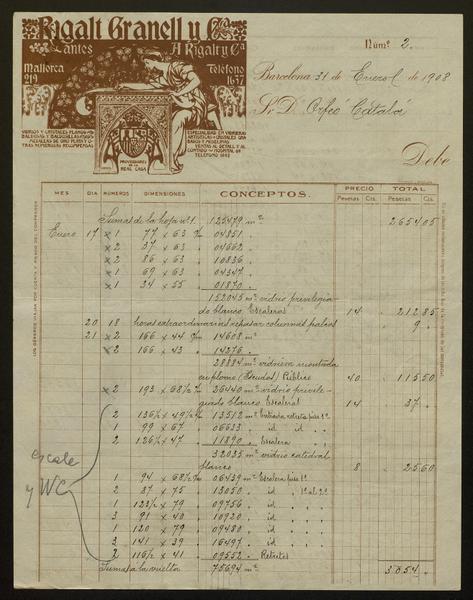 Rigalt Granell y Cª
Antes A Rigalt y Cª
Mallorca 219
Teléfono 1637
VIDRIOS Y CRISTALES PLANOS
MEDALLAS DE ORO PLATA Y OTRAS NUMEROSAS RECOMPENSAS
PROVEEDORES DE LA REAL CASA
ESPECIALIDAD EN VIDRIERAS ARTISTICAS
VENTAS AL DETALL Y AL CONTADO
Núm° 2.
Barcelona 31 de Enero de 1908
Sr. D. Orfeó Catalá
Debe
MES DIA NÚMEROS DIMENSIONES CONCEPTOS PRECIO TOTAL
Pesetas Cts. Pesetas Cts.
Suma de la hoja nº 1. 125479 m² 2654 05
Enero 17 x 1 77 x 63 04851
x 2 37 x 63 04662
x 2 86 x 63 10836
x 1 69 x 63 04347
x 1 34 x 55 01870
152045 m² vidrio privilegiado blanco. Escaleras 14 212 85
20 18 horas extraordinarias repasar columnas palcos 9
21 x 2 166 x 44 14608 m²
x 2 166 x 43 14276
28884 m² vidriera montada
en plomo (Escudos) Público 40 115 50
x 2 193 x 68½ 26440 m² vidrio privilegiado blanco. Escaleras 14 37
2 136½ x 49½ 13512 m²
1 99 x 67 06633 id id
2 126½ x 47 11890 Escalera
32035 m² vidrio catedral
blanco 8 25 60
1 94 x 68½ 06439 m² Escalera piso 1º
2 87 x 75 13050 id 1º al 2º
1 123½ x 79 09756 id
3 91 x 40 10920 id
1 120 x 79 09480 id
3 141 x 39 16497 id
2 116½ x 41 09552 Retretes
Suma a la vuelta 75694 m² 3054
escale
y WC